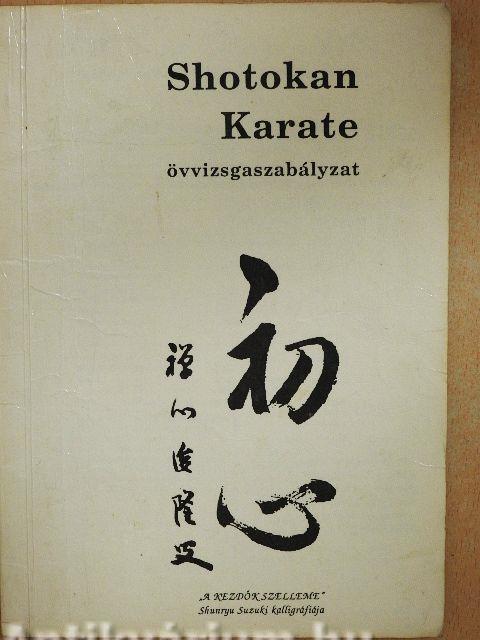 Shotokan
Karate
övvizsgaszabályzat
初心
„A KEZDŐK SZELLEME"
Shunryu Suzuki kalligráfiája